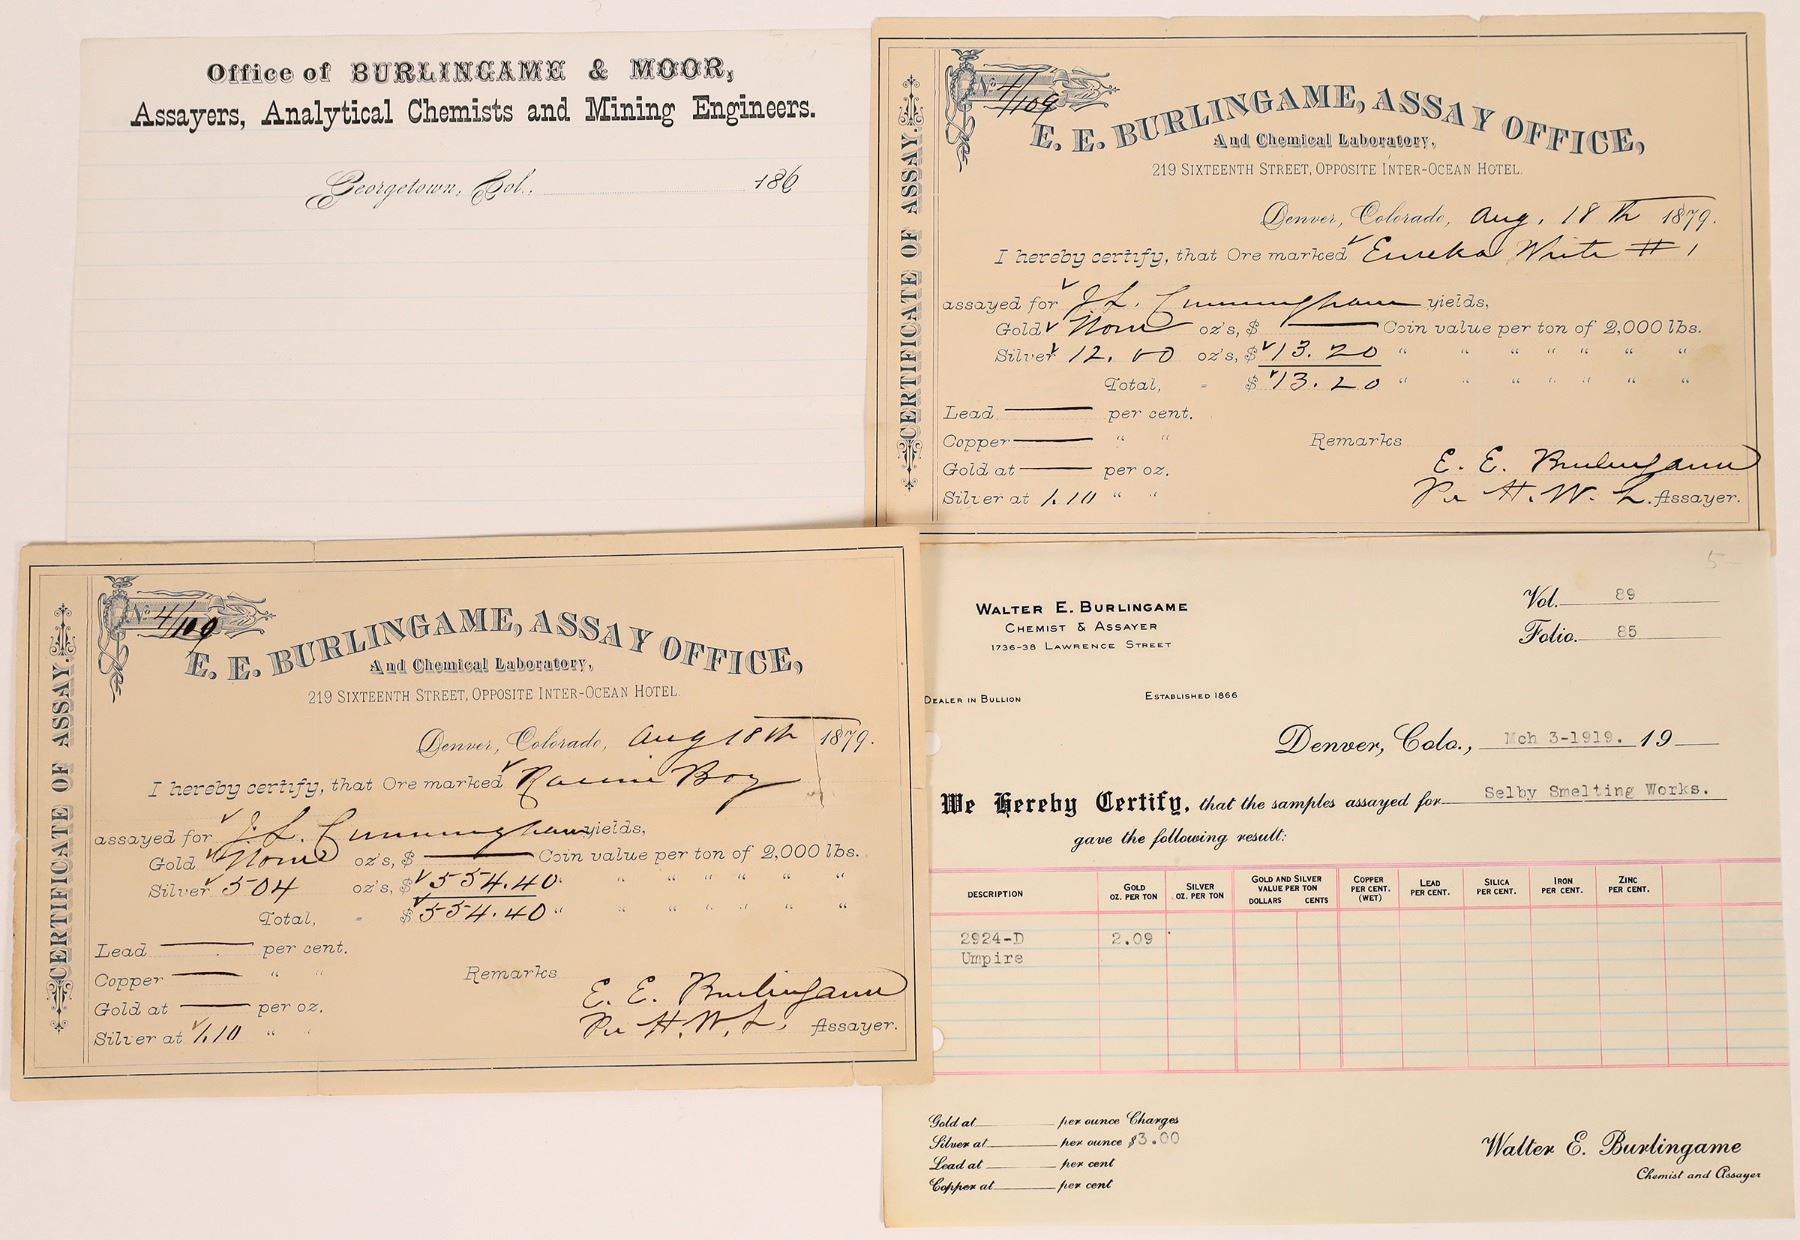 Office of BURLINGAME & MOOR,
Assayers, Analytical Chemists and Mining Engineers.
Georgetown, Col., 186
CERTIFICATE OF ASSAY.
No. 4/109
E. E. BURLINGAME, ASSAY OFFICE,
And Chemical Laboratory,
219 SIXTEENTH STREET, OPPOSITE INTER-OCEAN HOTEL.
Denver, Colorado, Aug. 18th 1879.
I hereby certify, that Ore marked Eureka White # 1
assayed for J. L. Cunningham yields,
Gold None oz's, $ Coin value per ton of 2,000 lbs.
Silver 12.00 oz's, $ 13.20 " " " " " " "
Total, - $ 13.20 " " " " " " "
Lead per cent.
Copper " "
Remarks
Gold at per oz.
E. E. Burlingame
Silver at 1.10 " "
Per H. W. L. Assayer.
CERTIFICATE OF ASSAY.
No. 4/109
E. E. BURLINGAME, ASSAY OFFICE,
And Chemical Laboratory,
219 SIXTEENTH STREET, OPPOSITE INTER-OCEAN HOTEL.
Denver, Colorado, Aug 18th 1879.
I hereby certify, that Ore marked Boy
assayed for J. L. Cunningham yields,
Gold None oz's, $ Coin value per ton of 2,000 lbs.
Silver 504 oz's, $ 554.40 " " " " " " "
Total, - $ 554.40 " " " " " " "
Lead per cent.
Copper " "
Remarks
Gold at per oz.
E. E. Burlingame
Silver at 1.10 " "
Per H. W. L. Assayer.
5-
WALTER E. BURLINGAME
CHEMIST & ASSAYER
1736-38 LAWRENCE STREET
Vol. 89
Folio. 85
DEALER IN BULLION ESTABLISHED 1866
Denver, Colo., Mch 3-1919. 19
We Hereby Certify, that the samples assayed for Selby Smelting Works.
gave the following result:
DESCRIPTION GOLD OZ. PER TON SILVER OZ. PER TON GOLD AND SILVER VALUE PER TON DOLLARS CENTS COPPER PER CENT. (WET) LEAD PER CENT. SILICA PER CENT. IRON PER CENT. ZINC PER CENT.
2924-D 2.09
Umpire
Gold at per ounce Charges
Silver at per ounce $3.00
Lead at per cent
Copper at per cent
Walter E. Burlingame
Chemist and Assayer